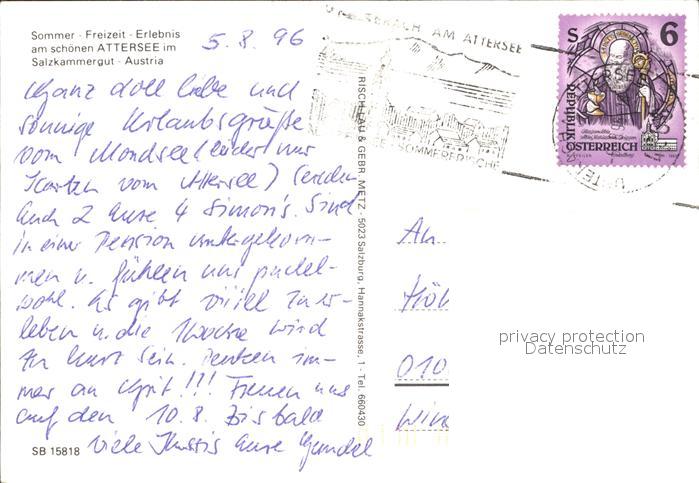 Sommer - Freizeit - Erlebnis
am schönen ATTERSEE im
Salzkammergut - Austria
5.8.96
Ganz doll liebe und
sonnige Urlaubsgrüße
vom Mondsee (leider nur
Karten vom Attersee) senden
Euch 2 Eure 4 Simon's. Sind
in einer Pension untergekom-
men u. fühlen uns pudel-
wohl. Es gibt viiiel zu er-
leben u. die Woche wird
zu kurz sein. Denken im-
mer an !!! Freuen uns
auf den 10.8. Bis bald
viele Bussis Eure
SB 15818
RISCHLAU & GEBR. METZ - 5023 Salzburg, Hannakstrasse, 1 - Tel. 660430
AM ATTERSEE
SOMMERFRISCHE
S 6
REPUBLIK
ÖSTERREICH
An
Höh
010
Win
privacy protection
Datenschutz